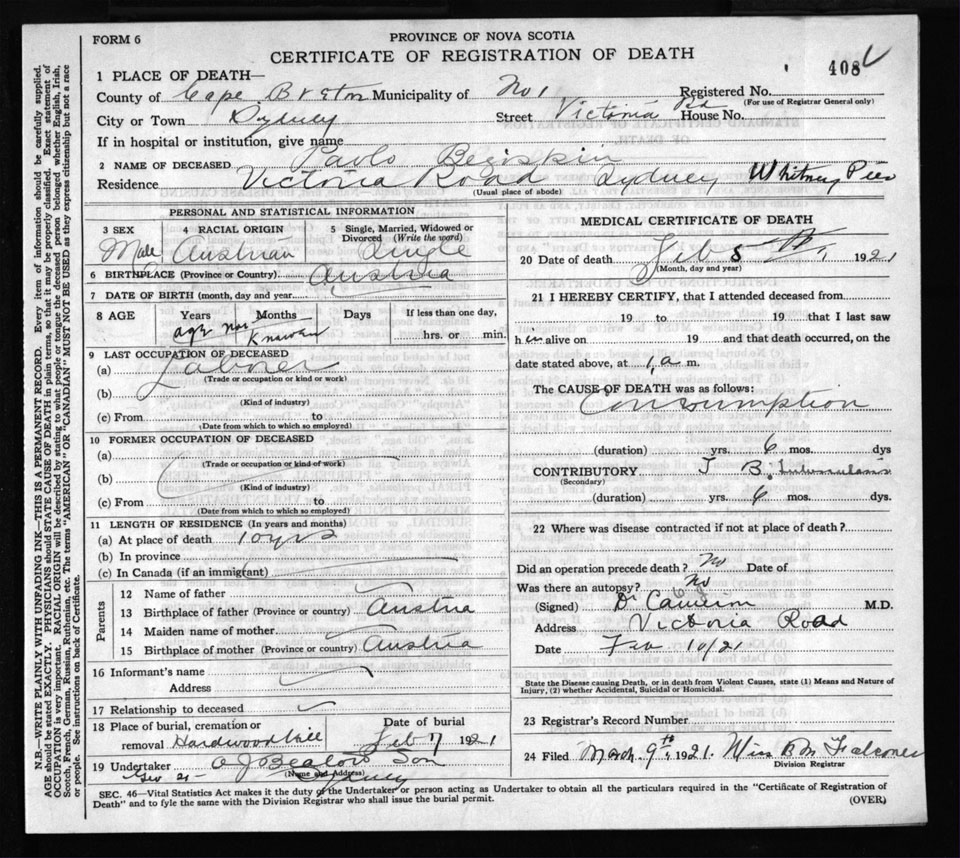 FORM 6
PROVINCE OF NOVA SCOTIA
CERTIFICATE OF REGISTRATION OF DEATH
408
1 PLACE OF DEATH—
County of Cape Breton Municipality of No 1 Registered No.
(For use of Registrar General only)
City or Town Sydney Street Victoria Rd House No.
If in hospital or institution, give name
2 NAME OF DECEASED Pavlo Begiskin
Residence Victoria Road Sydney Whitney Pier
(Usual place of abode)
PERSONAL AND STATISTICAL INFORMATION
3 SEX Male
4 RACIAL ORIGIN Austrian
5 Single, Married, Widowed or Divorced (Write the word) Single
6 BIRTHPLACE (Province or Country) Austria
7 DATE OF BIRTH (month, day and year)
8 AGE Years Months Days If less than one day,
age not Known hrs. or min.
9 LAST OCCUPATION OF DECEASED
(a) Laborer
(Trade or occupation or kind or work)
(b)
(Kind of industry)
(c) From to
(Date from which to which so employed)
10 FORMER OCCUPATION OF DECEASED
(a)
(Trade or occupation or kind of work)
(b)
(Kind of industry)
(c) From to
(Date from which to which so employed)
11 LENGTH OF RESIDENCE (In years and months)
(a) At place of death 10 yrs
(b) In province
(c) In Canada (if an immigrant)
Parents
12 Name of father
13 Birthplace of father (Province or country) Austria
14 Maiden name of mother
15 Birthplace of mother (Province or country) Austria
16 Informant's name
Address
17 Relationship to deceased
18 Place of burial, cremation or removal Hardwood Hill
Date of burial Feb 7 1921
19 Undertaker A J Beaton Son
(Name and Address)
Geo St Sydney
MEDICAL CERTIFICATE OF DEATH
20 Date of death Feb 5th 1921
(Month, day and year)
21 I HEREBY CERTIFY, that I attended deceased from
19 to 19 that I last saw
him alive on 19 and that death occurred, on the
date stated above, at 1 a m.
The CAUSE OF DEATH was as follows:
Consumption
(duration) yrs. 6 mos. dys
CONTRIBUTORY T B.
(Secondary)
(duration) yrs. 6 mos. dys.
22 Where was disease contracted if not at place of death?
Did an operation precede death? No Date of
Was there an autopsy? No
(Signed) Dr Cameron M.D.
Address Victoria Road
Date Feb 10/21
State the Disease causing Death, or in death from Violent Causes, state (1) Means and Nature of
Injury, (2) whether Accidental, Suicidal or Homicidal.
23 Registrar's Record Number
24 Filed March 9th 1921. Miss B M Falconer
Division Registrar
SEC. 46—Vital Statistics Act makes it the duty of the Undertaker or person acting as Undertaker to obtain all the particulars required in the "Certificate of Registration of
Death" and to fyle the same with the Division Registrar who shall issue the burial permit.
(OVER)
N.B.—WRITE PLAINLY WITH UNFADING INK—THIS IS A PERMANENT RECORD. Every item of information should be carefully supplied.
AGE should be stated EXACTLY. PHYSICIANS should STATE CAUSE OF DEATH in plain terms, so that it may be properly classified. Exact statement of
OCCUPATION is very important. RACIAL ORIGIN will be described by stating to what people or tongue the deceased person belonged, whether English, Irish,
Scotch, French, German, Russian, Ruthenian, etc. The terms "AMERICAN" OR "CANADIAN" MUST NOT BE USED as they express citizenship but not a race
or people. See instructions on back of Certificate.